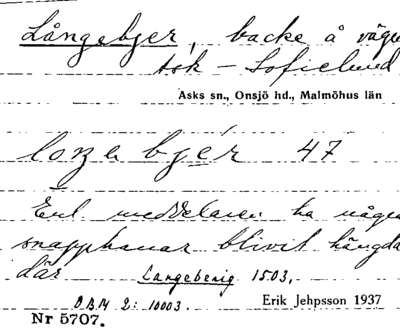 Långebjer, backe å vägen
Ask – Sofielund
Asks sn., Onsjö hd., Malmöhus län
bjér 47
Enl meddelaren ha några
snapphanar blivit hängda
där Langebierig 1503,
D.B.M 2: 10003. Erik Jehpsson 1937
Nr 5707.